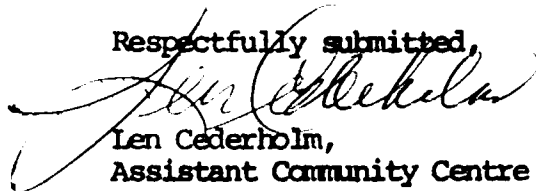 Respectfully submitted,
Len Cederholm
Len Cederholm,
Assistant Community Centre